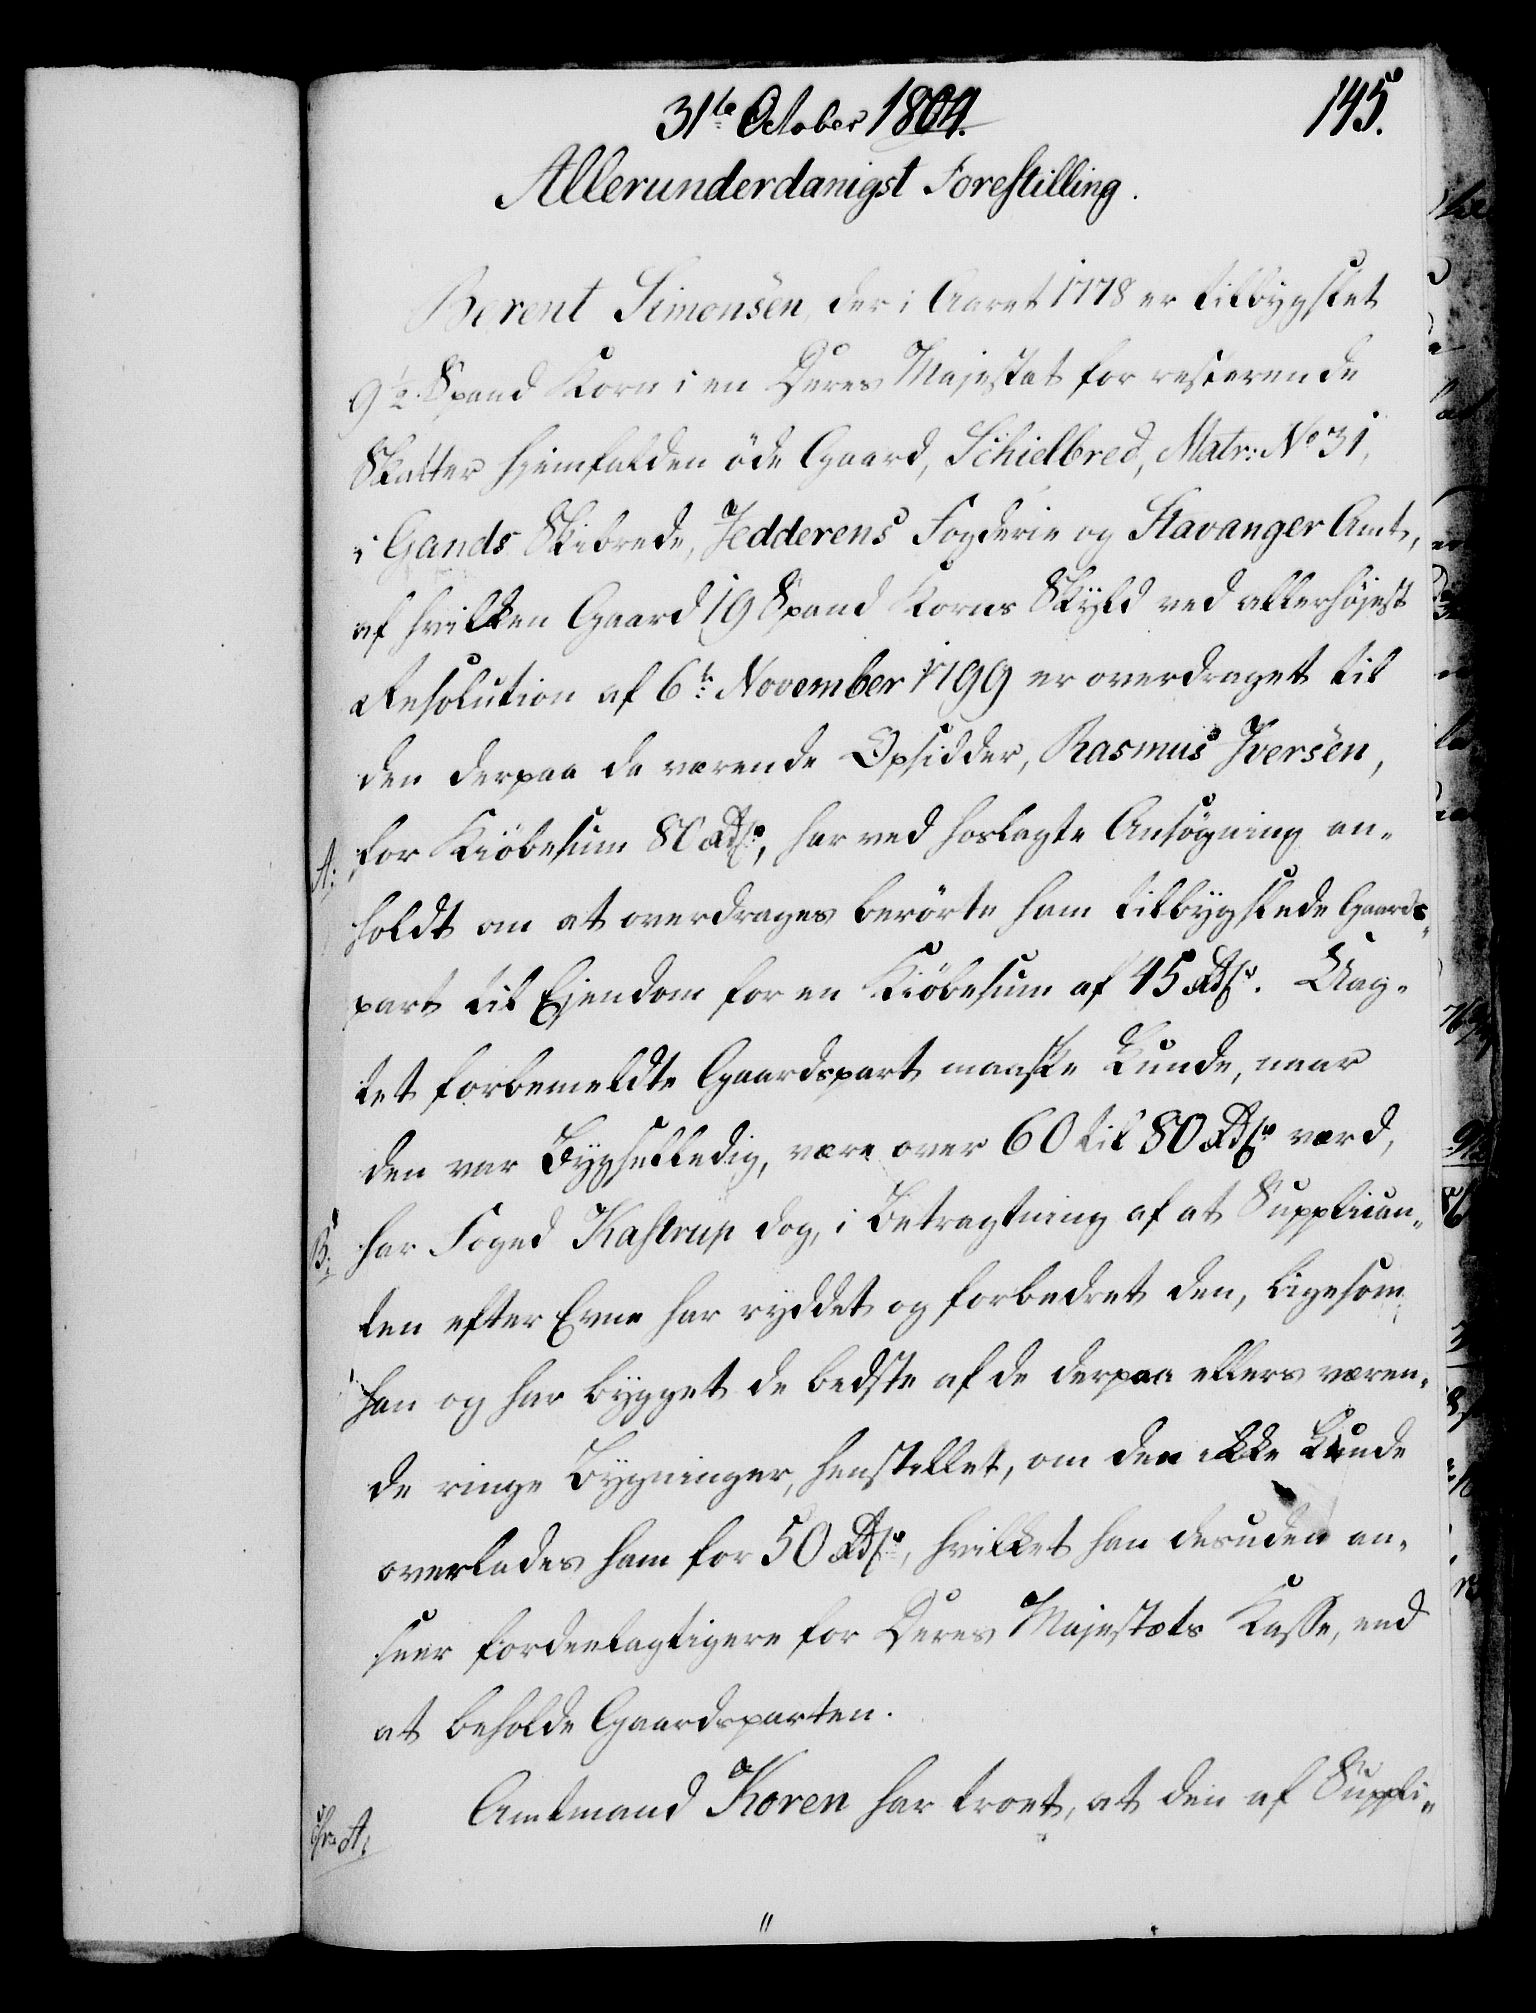 31te October 1804.
145.
Allerunderdanigst Forestilling.
Berent Simonsen, der i Aaret 1778 er tilbygslet
9½ Spand Korn i en Deres Majestæt for resterende
Skatter hjemfalden öde Gaard, Schielbred, Matr: No 31,
i Gands Skibrede, Jedderens Fogderie og Stavanger Amt,
af hvilken Gaard 19 Spand Korns Skyld ved allerhöjest
Resolution af 6te November 1799 er overdraget til
den derpaa da værende Opsidder, Rasmus Iversen,
A: for Kiöbesum 80 Rdlr, har ved hoslagte Ansögning an-
holdt om at overdrages berörte ham tilbygslede Gaards-
part til Ejendom for en Kiöbesum af 45 Rdlr. Uag-
tet forbemeldte Gaardspart maaske kunde, naar
den var Bygselledig, være over 60 til 80 Rdlr værd,
B: har Foged Kastrup dog, i Betragtning af at Supplican-
ten efter Evne har ryddet og forbedret den, ligesom
han og har bygget de bedste af de derpaa ellers væren-
de ringe Bygninger, henstillet, om den ikke kunde
overlades ham for 50 Rdlr, hvilket han desuden an-
seer fordeelagtigere for Deres Majestæts Kasse, end
at beholde Gaardsparten.
A: Amtmand Koren har troet, at den af Suppli-